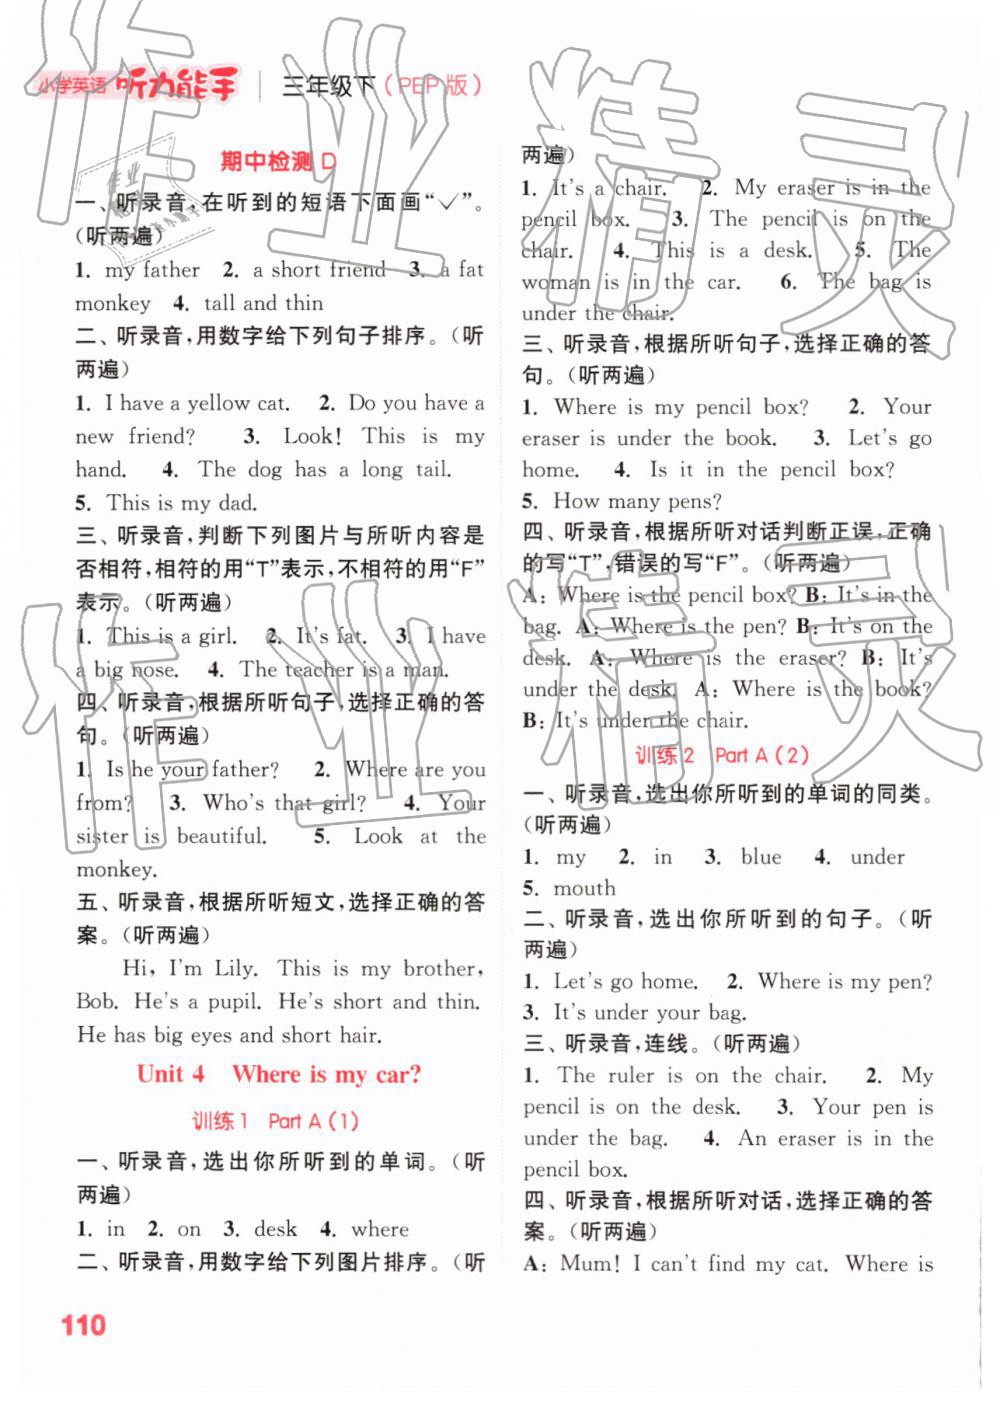 小学英语 听力能手 三年级下（PEP版）
期中检测 D
一、听录音,在听到的短语下面画“✓”。
（听两遍）
1. my father 2. a short friend 3. a fat
monkey 4. tall and thin
二、听录音,用数字给下列句子排序。（听
两遍）
1. I have a yellow cat. 2. Do you have a
new friend? 3. Look! This is my
hand. 4. The dog has a long tail.
5. This is my dad.
三、听录音,判断下列图片与所听内容是
否相符,相符的用“T”表示,不相符的用“F”
表示。（听两遍）
1. This is a girl. 2. It's fat. 3. I have
a big nose. 4. The teacher is a man.
四、听录音,根据所听句子,选择正确的答
句。（听两遍）
1. Is he your father? 2. Where are you
from? 3. Who's that girl? 4. Your
sister is beautiful. 5. Look at the
monkey.
五、听录音,根据所听短文,选择正确的答
案。（听两遍）
Hi, I'm Lily. This is my brother,
Bob. He's a pupil. He's short and thin.
He has big eyes and short hair.
Unit 4 Where is my car?
训练1 Part A（1）
一、听录音,选出你所听到的单词。（听
两遍）
1. in 2. on 3. desk 4. where
二、听录音,用数字给下列图片排序。（听
两遍）
1. It's a chair. 2. My eraser is in the
pencil box. 3. The pencil is on the
chair. 4. This is a desk. 5. The
woman is in the car. 6. The bag is
under the chair.
三、听录音,根据所听句子,选择正确的答
句。（听两遍）
1. Where is my pencil box? 2. Your
eraser is under the book. 3. Let's go
home. 4. Is it in the pencil box?
5. How many pens?
四、听录音,根据所听对话判断正误,正确
的写“T”,错误的写“F”。（听两遍）
A: Where is the pencil box? B: It's in the
bag. A: Where is the pen? B: It's on the
desk. A: Where is the eraser? B: It's
under the desk. A: Where is the book?
B: It's under the chair.
训练2 Part A（2）
一、听录音,选出你所听到的单词的同类。
（听两遍）
1. my 2. in 3. blue 4. under
5. mouth
二、听录音,选出你所听到的句子。（听
两遍）
1. Let's go home. 2. Where is my pen?
3. It's under your bag.
三、听录音,连线。（听两遍）
1. The ruler is on the chair. 2. My
pencil is on the desk. 3. Your pen is
under the bag. 4. An eraser is in the
pencil box.
四、听录音,根据所听对话,选择正确的答
案。（听两遍）
A: Mum! I can't find my cat. Where is
110
作业精灵
作业精灵